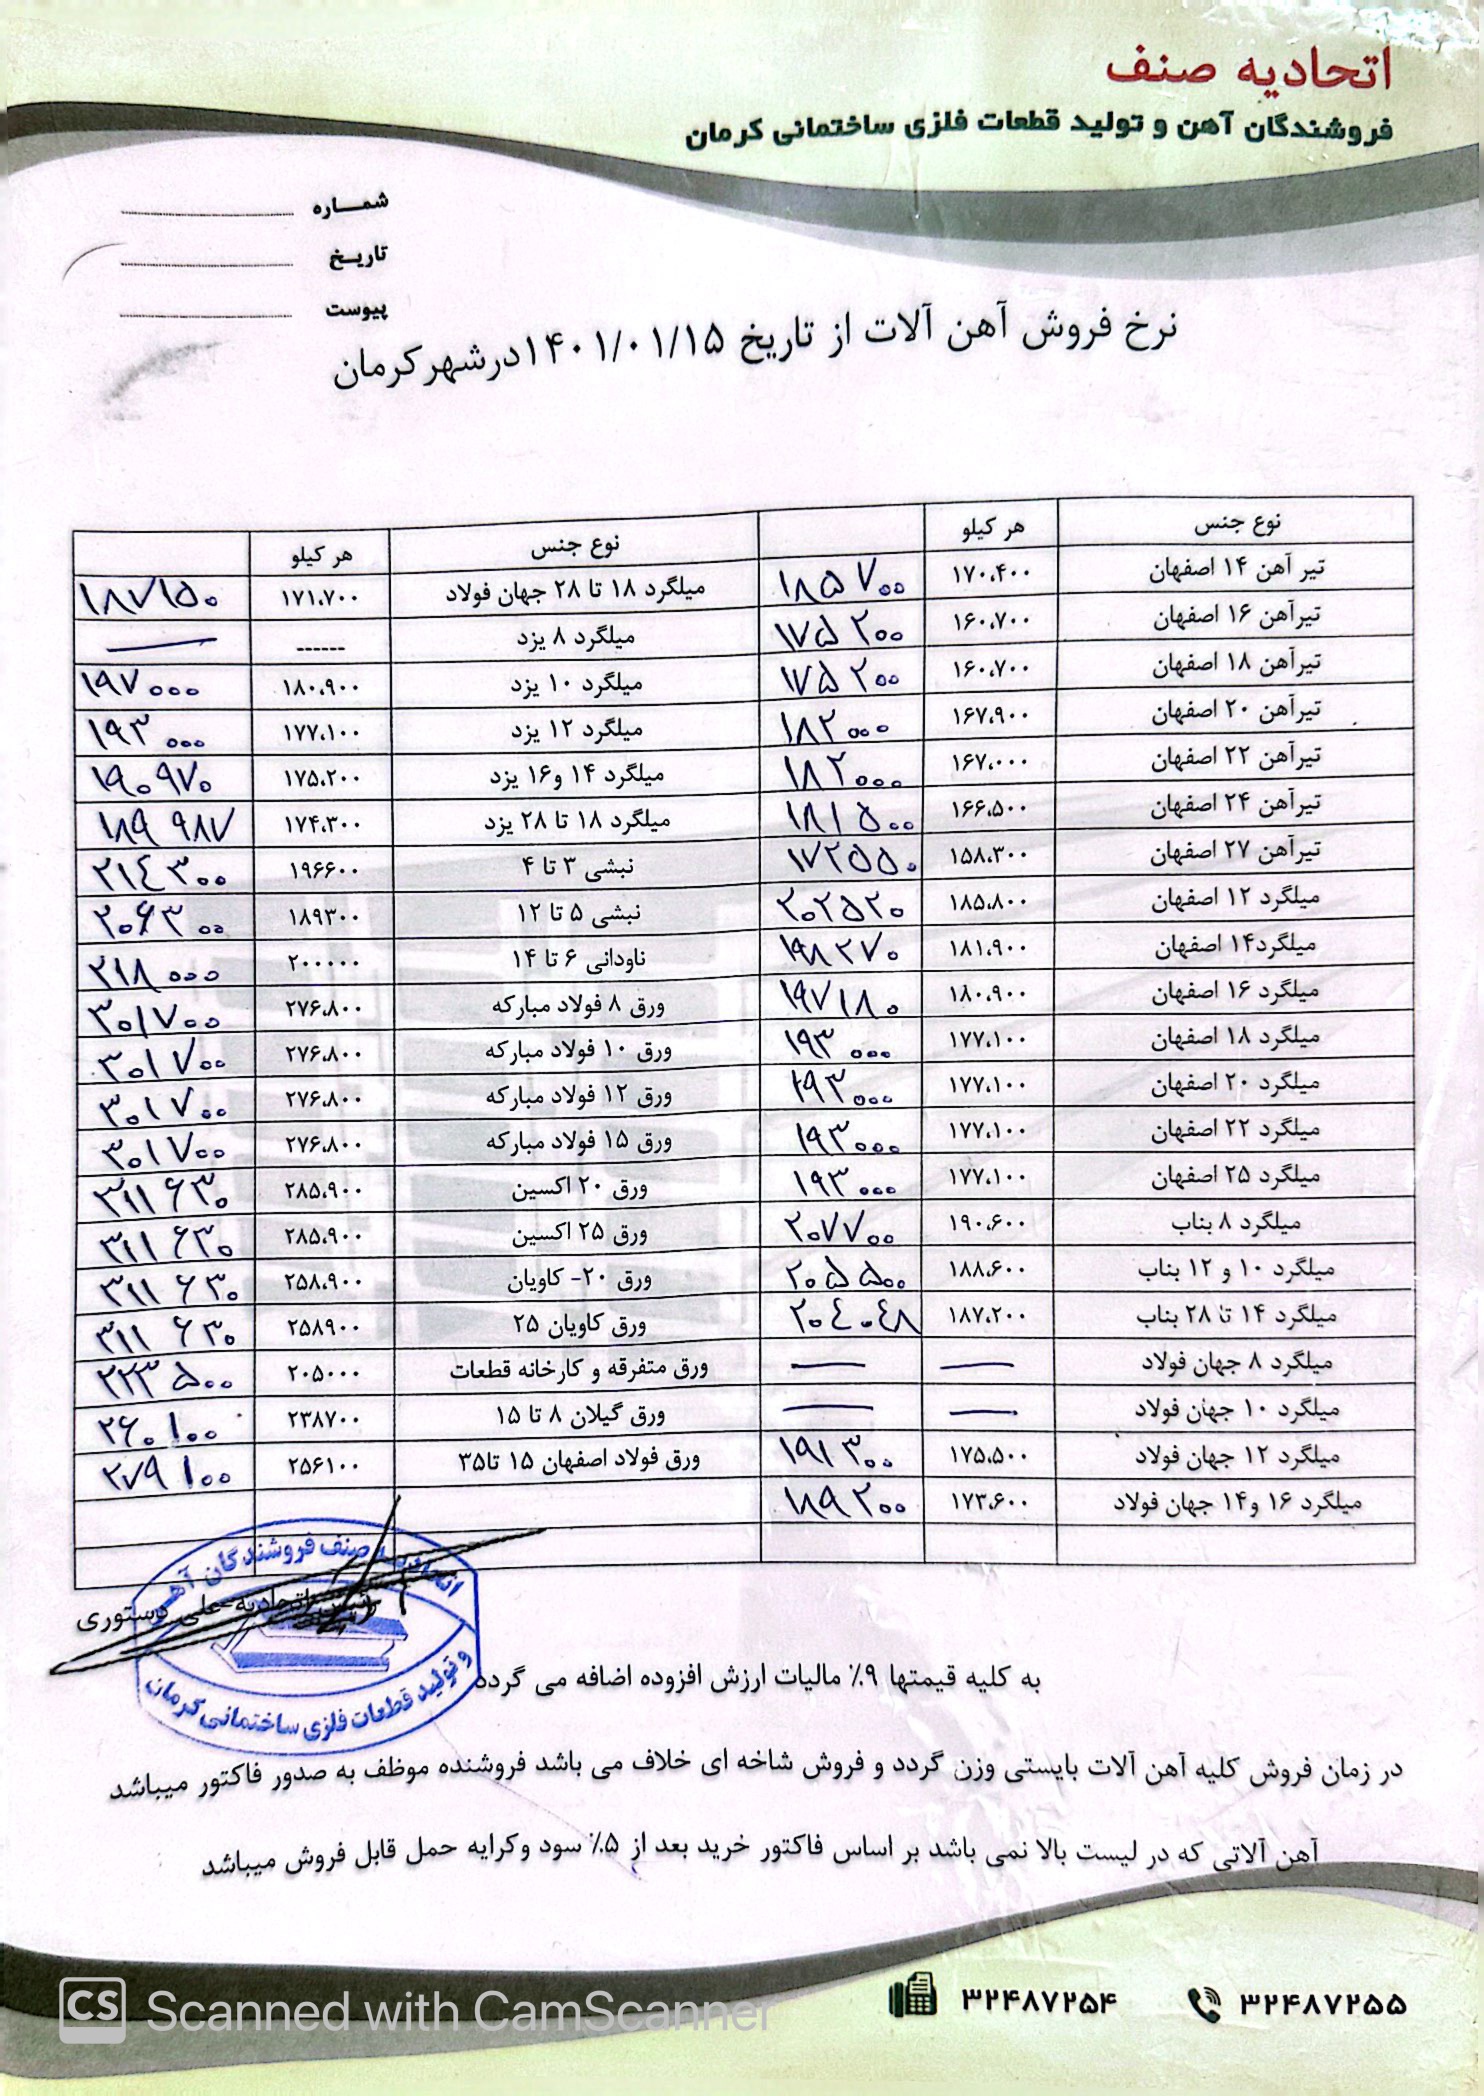 اتحادیه صنف
فروشندگان آهن و تولید قطعات فلزی ساختمانی کرمان
شمـــاره
تاریـخ
پیوست
نرخ فروش آهن آلات از تاریخ ۱۴۰۱/۰۱/۱۵درشهرکرمان
نوع جنس هر کیلو نوع جنس هر کیلو
تیر آهن ۱۴ اصفهان ۱۷۰،۴۰۰ ۱۸۵۷۰۰ میلگرد ۱۸ تا ۲۸ جهان فولاد ۱۷۱،۷۰۰ ۱۸۷۱۵۰
تیرآهن ۱۶ اصفهان ۱۶۰،۷۰۰ ۱۷۵۲۰۰ میلگرد ۸ یزد ------ —
تیرآهن ۱۸ اصفهان ۱۶۰،۷۰۰ ۱۷۵۲۰۰ میلگرد ۱۰ یزد ۱۸۰،۹۰۰ ۱۹۷۰۰۰
تیرآهن ۲۰ اصفهان ۱۶۷،۹۰۰ ۱۸۲۰۰۰ میلگرد ۱۲ یزد ۱۷۷،۱۰۰ ۱۹۳۰۰۰
تیرآهن ۲۲ اصفهان ۱۶۷،۰۰۰ ۱۸۲۰۰۰ میلگرد ۱۴ و۱۶ یزد ۱۷۵،۲۰۰ ۱۹۰۹۷۰
تیرآهن ۲۴ اصفهان ۱۶۶،۵۰۰ ۱۸۱۵۰۰ میلگرد ۱۸ تا ۲۸ یزد ۱۷۴،۳۰۰ ۱۸۹۹۸۷
تیرآهن ۲۷ اصفهان ۱۵۸،۳۰۰ ۱۷۲۵۵۰ نبشی ۳ تا ۴ ۱۹۶۶۰۰ ۲۱۴۳۰۰
میلگرد ۱۲ اصفهان ۱۸۵،۸۰۰ ۲۰۲۵۲۰ نبشی ۵ تا ۱۲ ۱۸۹۳۰۰ ۲۰۶۳۰۰
میلگرد۱۴ اصفهان ۱۸۱،۹۰۰ ۱۹۸۲۷۰ ناودانی ۶ تا ۱۴ ۲۰۰۰۰۰ ۲۱۸۰۰۰
میلگرد ۱۶ اصفهان ۱۸۰،۹۰۰ ۱۹۷۱۸۰ ورق ۸ فولاد مبارکه ۲۷۶،۸۰۰ ۳۰۱۷۰۰
میلگرد ۱۸ اصفهان ۱۷۷،۱۰۰ ۱۹۳۰۰۰ ورق ۱۰ فولاد مبارکه ۲۷۶،۸۰۰ ۳۰۱۷۰۰
میلگرد ۲۰ اصفهان ۱۷۷،۱۰۰ ۱۹۳۰۰۰ ورق ۱۲ فولاد مبارکه ۲۷۶،۸۰۰ ۳۰۱۷۰۰
میلگرد ۲۲ اصفهان ۱۷۷،۱۰۰ ۱۹۳۰۰۰ ورق ۱۵ فولاد مبارکه ۲۷۶،۸۰۰ ۳۰۱۷۰۰
میلگرد ۲۵ اصفهان ۱۷۷،۱۰۰ ۱۹۳۰۰۰ ورق ۲۰ اکسین ۲۸۵،۹۰۰ ۳۱۱۶۳۰
میلگرد ۸ بناب ۱۹۰،۶۰۰ ۲۰۷۷۰۰ ورق ۲۵ اکسین ۲۸۵،۹۰۰ ۳۱۱۶۳۰
میلگرد ۱۰ و ۱۲ بناب ۱۸۸،۶۰۰ ۲۰۵۵۰۰ ورق ۲۰- کاویان ۲۵۸،۹۰۰ ۳۱۱۶۳۰
میلگرد ۱۴ تا ۲۸ بناب ۱۸۷،۲۰۰ ۲۰۴۰۴۸ ورق کاویان ۲۵ ۲۵۸۹۰۰ ۳۱۱۶۳۰
میلگرد ۸ جهان فولاد — — ورق متفرقه و کارخانه قطعات ۲۰۵۰۰۰ ۲۲۳۵۰۰
میلگرد ۱۰ جهان فولاد — — ورق گیلان ۸ تا ۱۵ ۲۳۸۷۰۰ ۲۶۰۱۰۰
میلگرد ۱۲ جهان فولاد ۱۷۵،۵۰۰ ۱۹۱۳۰۰ ورق فولاد اصفهان ۱۵ تا۳۵ ۲۵۶۱۰۰ ۲۷۹۱۰۰
میلگرد ۱۶ و۱۴ جهان فولاد ۱۷۳،۶۰۰ ۱۸۹۲۰۰
اتحادیه صنف فروشندگان آهن
رئیس اتحادیه-علی دستوری
و تولید قطعات فلزی ساختمانی کرمان
به کلیه قیمتها ۹٪ مالیات ارزش افزوده اضافه می گردد
در زمان فروش کلیه آهن آلات بایستی وزن گردد و فروش شاخه ای خلاف می باشد فروشنده موظف به صدور فاکتور میباشد
آهن آلاتی که در لیست بالا نمی باشد بر اساس فاکتور خرید بعد از ۵٪ سود وکرایه حمل قابل فروش میباشد
۳۲۴۸۷۲۵۵ ۳۲۴۸۷۲۵۴
CS Scanned with CamScanner